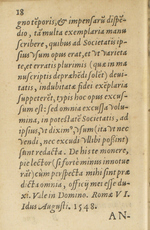 18
gno tēporis, & impensarū dispē-
dio, tā multa exemplaria manu
scribere, quibus ad Societatis ip-
sius vsum opus erat, et ne varieta
te, et erratis plurimis (quæ in ma
nuscriptis deprahēdi solēt) deui-
tatis, indubitatæ fidei exēplaria
suppeterēt, typis hoc opus excu-
sum est: sed omnia excussa volu-
mina, in potestatē Societatis, ad
ipsius, vt dixim9, vsum (ita vt nec
vende, nec excudi possint)
sunt redacta. De his te monere,
pie lector (si fortè minus innotue
rāt) cūm perspecta mihi sint præ
dicta omnia, officij mei esse du-
xi. Vale in Domino. Romæ VI.
Idus Augusti. 1548.
AN-